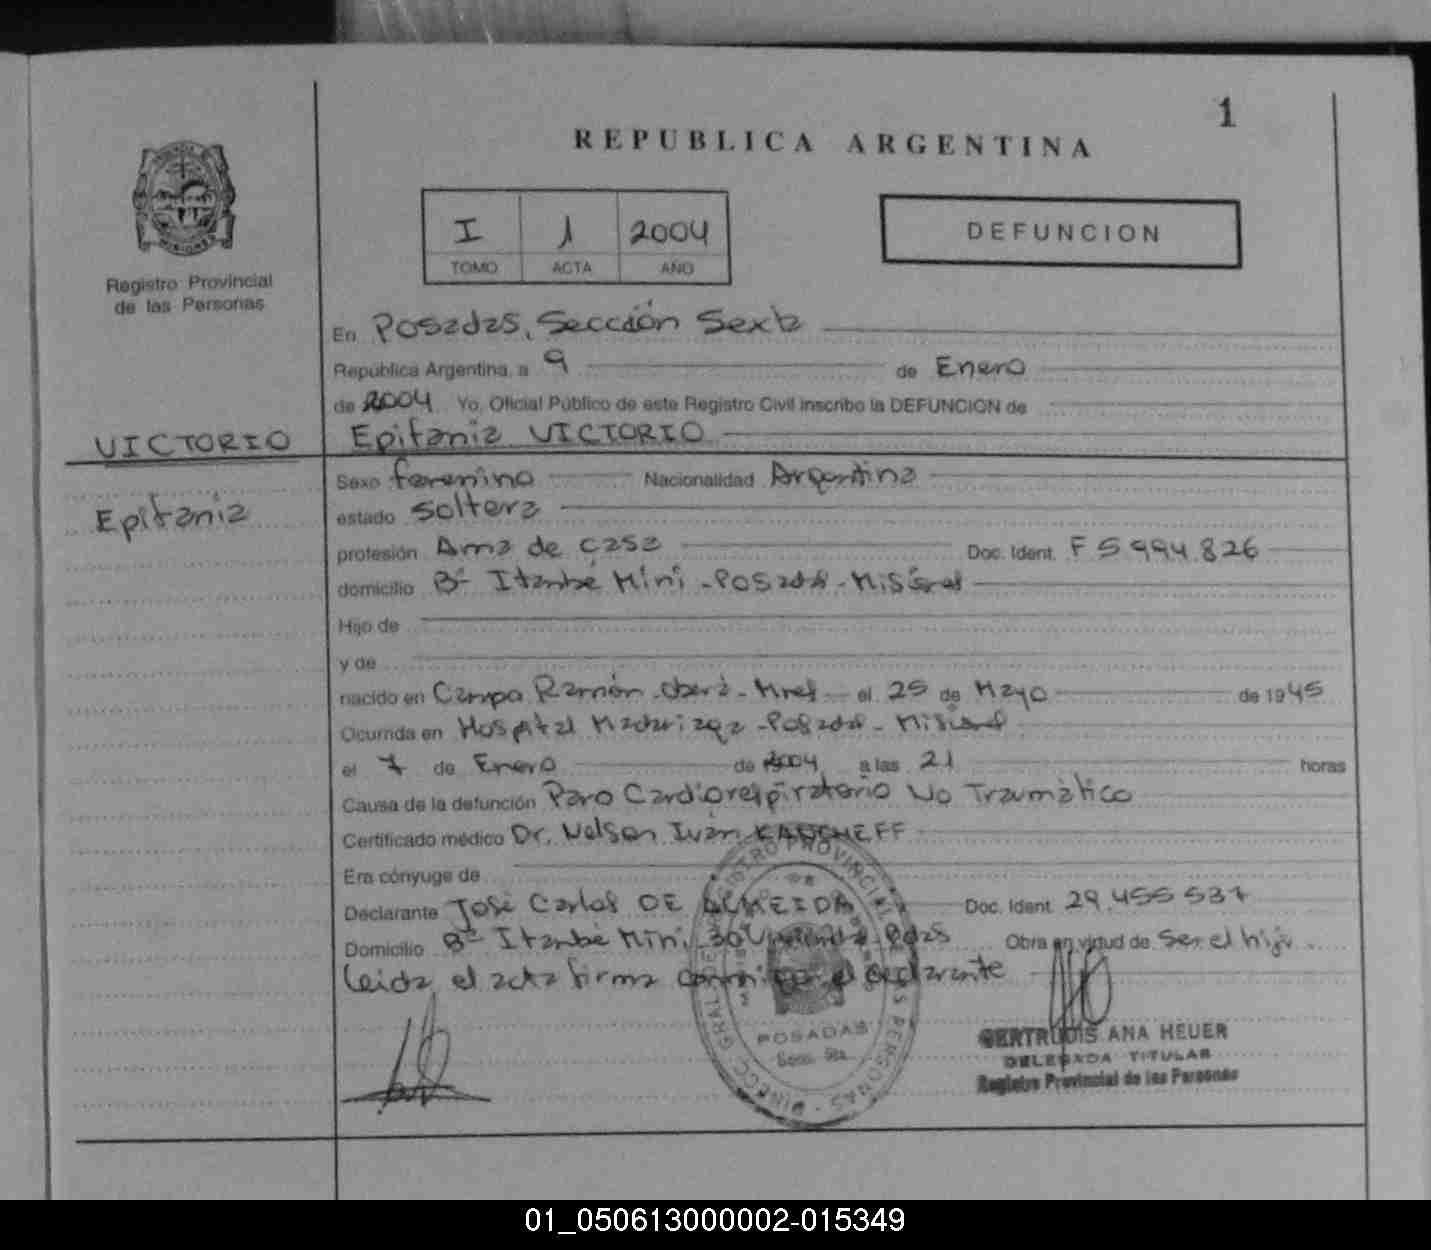 1
REPUBLICA ARGENTINA
MISIONES
Registro Provincial
de las Personas
I 1 2004
TOMO ACTA AÑO
DEFUNCION
En Posadas, Sección Sexta
República Argentina, a 9 de Enero
de 2004 Yo, Oficial Público de este Registro Civil inscribo la DEFUNCION de
VICTORIO
Epifania VICTORIO
Epifania
Sexo femenino Nacionalidad Argentina
estado Soltera
profesión Ama de casa Doc. Ident. F 5 994.826
domicilio Bº Itambé Mini - Posadas - Misiones
Hijo de
y de
nacido en Campo Ramón - Oberá - Mnes el 25 de Mayo de 1945
Ocurrida en Hospital Madariaga - Posadas - Misiones
el 7 de Enero de 2004 a las 21 horas
Causa de la defunción Paro Cardiorespiratorio No Traumático
Certificado médico Dr. Nelson Iván
Era cónyuge de
Declarante José Carlos DE ALMEIDA Doc. Ident. 29.455 537
Domicilio Bº Itambé Mini, 30 Pdas Obra en virtud de Ser el hijo
Leida el acta firma conmigo el declarante
POSADAS
Secc. 6ta.
GERTRUDIS ANA HEUER
DELEGADA TITULAR
Registro Provincial de las Personas
01_050613000002-015349